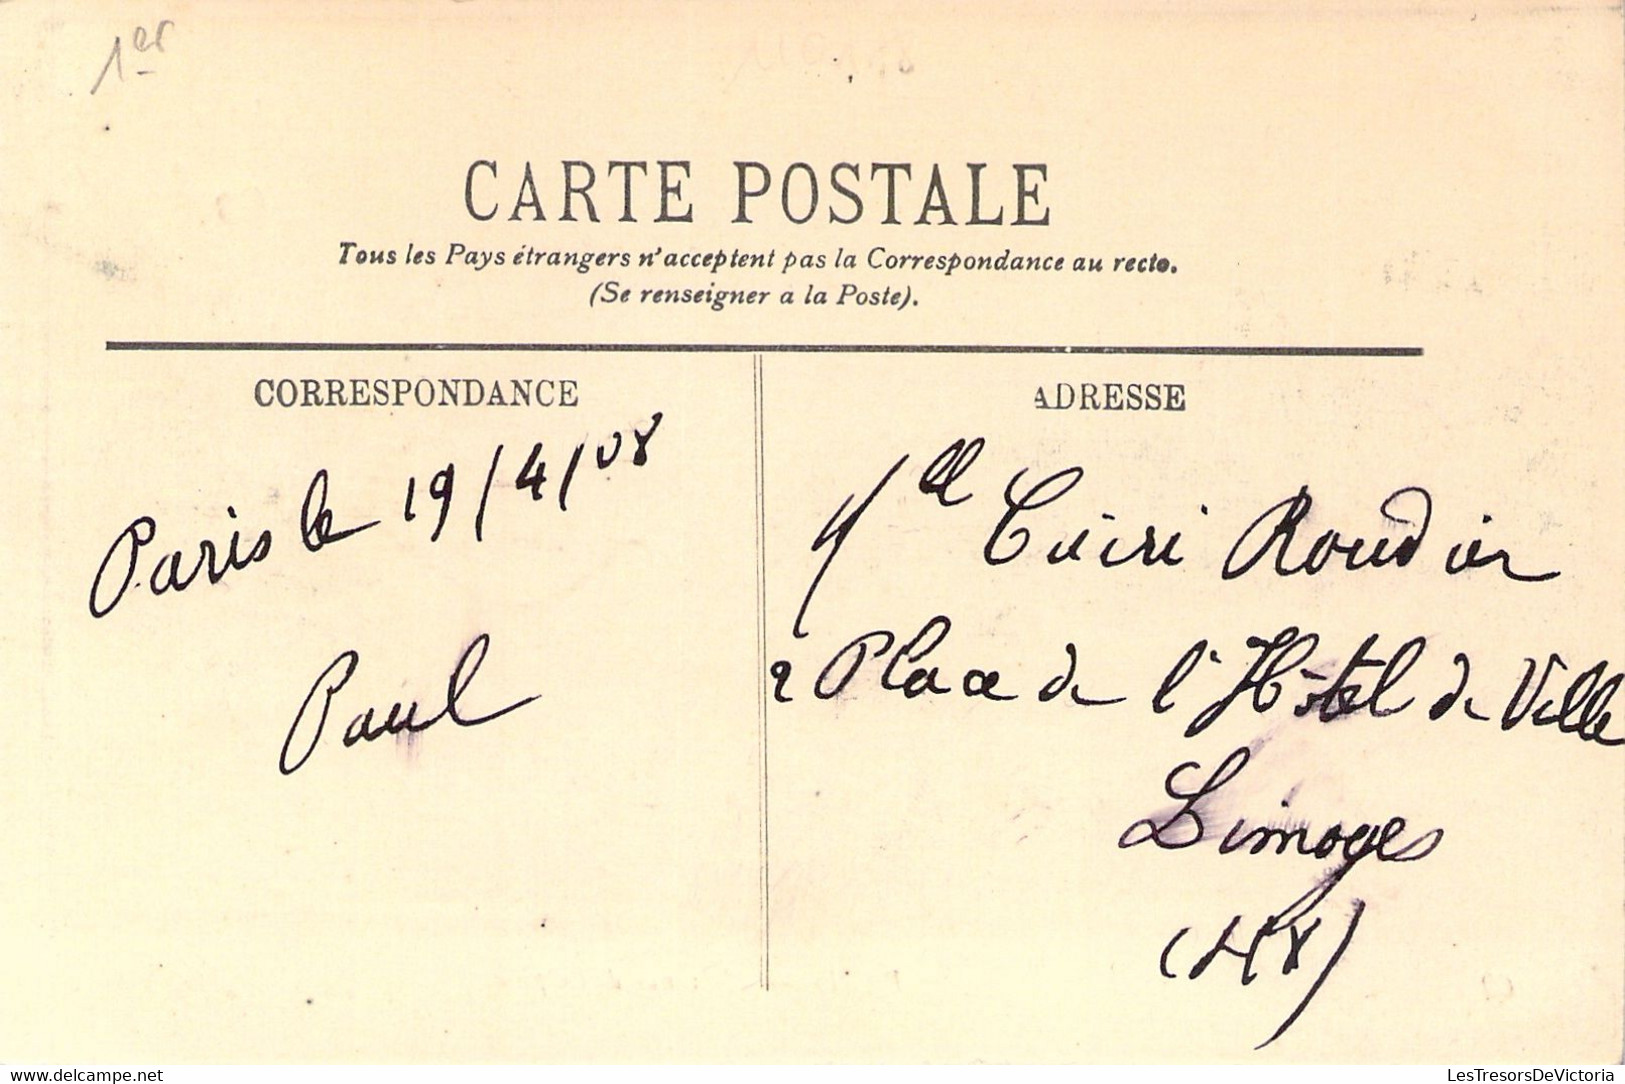 1er
CARTE POSTALE
Tous les Pays étrangers n'acceptent pas la Correspondance au recto.
(Se renseigner a la Poste).
CORRESPONDANCE
Paris le 19/4/08
Paul
ADRESSE
Mlle Roudier
2 Place de l'Hôtel de Ville
Limoges
(HV)
LesTresorsDeVictoria